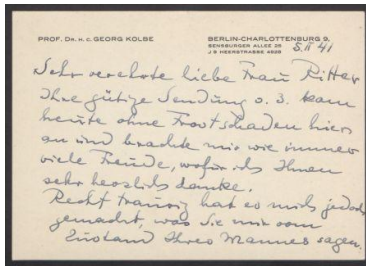 PROF. DR. H. C. GEORG KOLBE
BERLIN-CHARLOTTENBURG 9,
SENSBURGER ALLEE 25
J 9 HEERSTRASSE 4628
5. II 41
Sehr verehrte liebe Frau Ritter
Ihre gütige Sendung v. 3. kam
heute ohne Frostschaden hier
an und brachte mir wie immer
viele Freude, wofür ich Ihnen
sehr herzlich danke.
Recht traurig hat es mich jedoch
gemacht, was Sie mir vom
Zustand Ihres Mannes sagen.